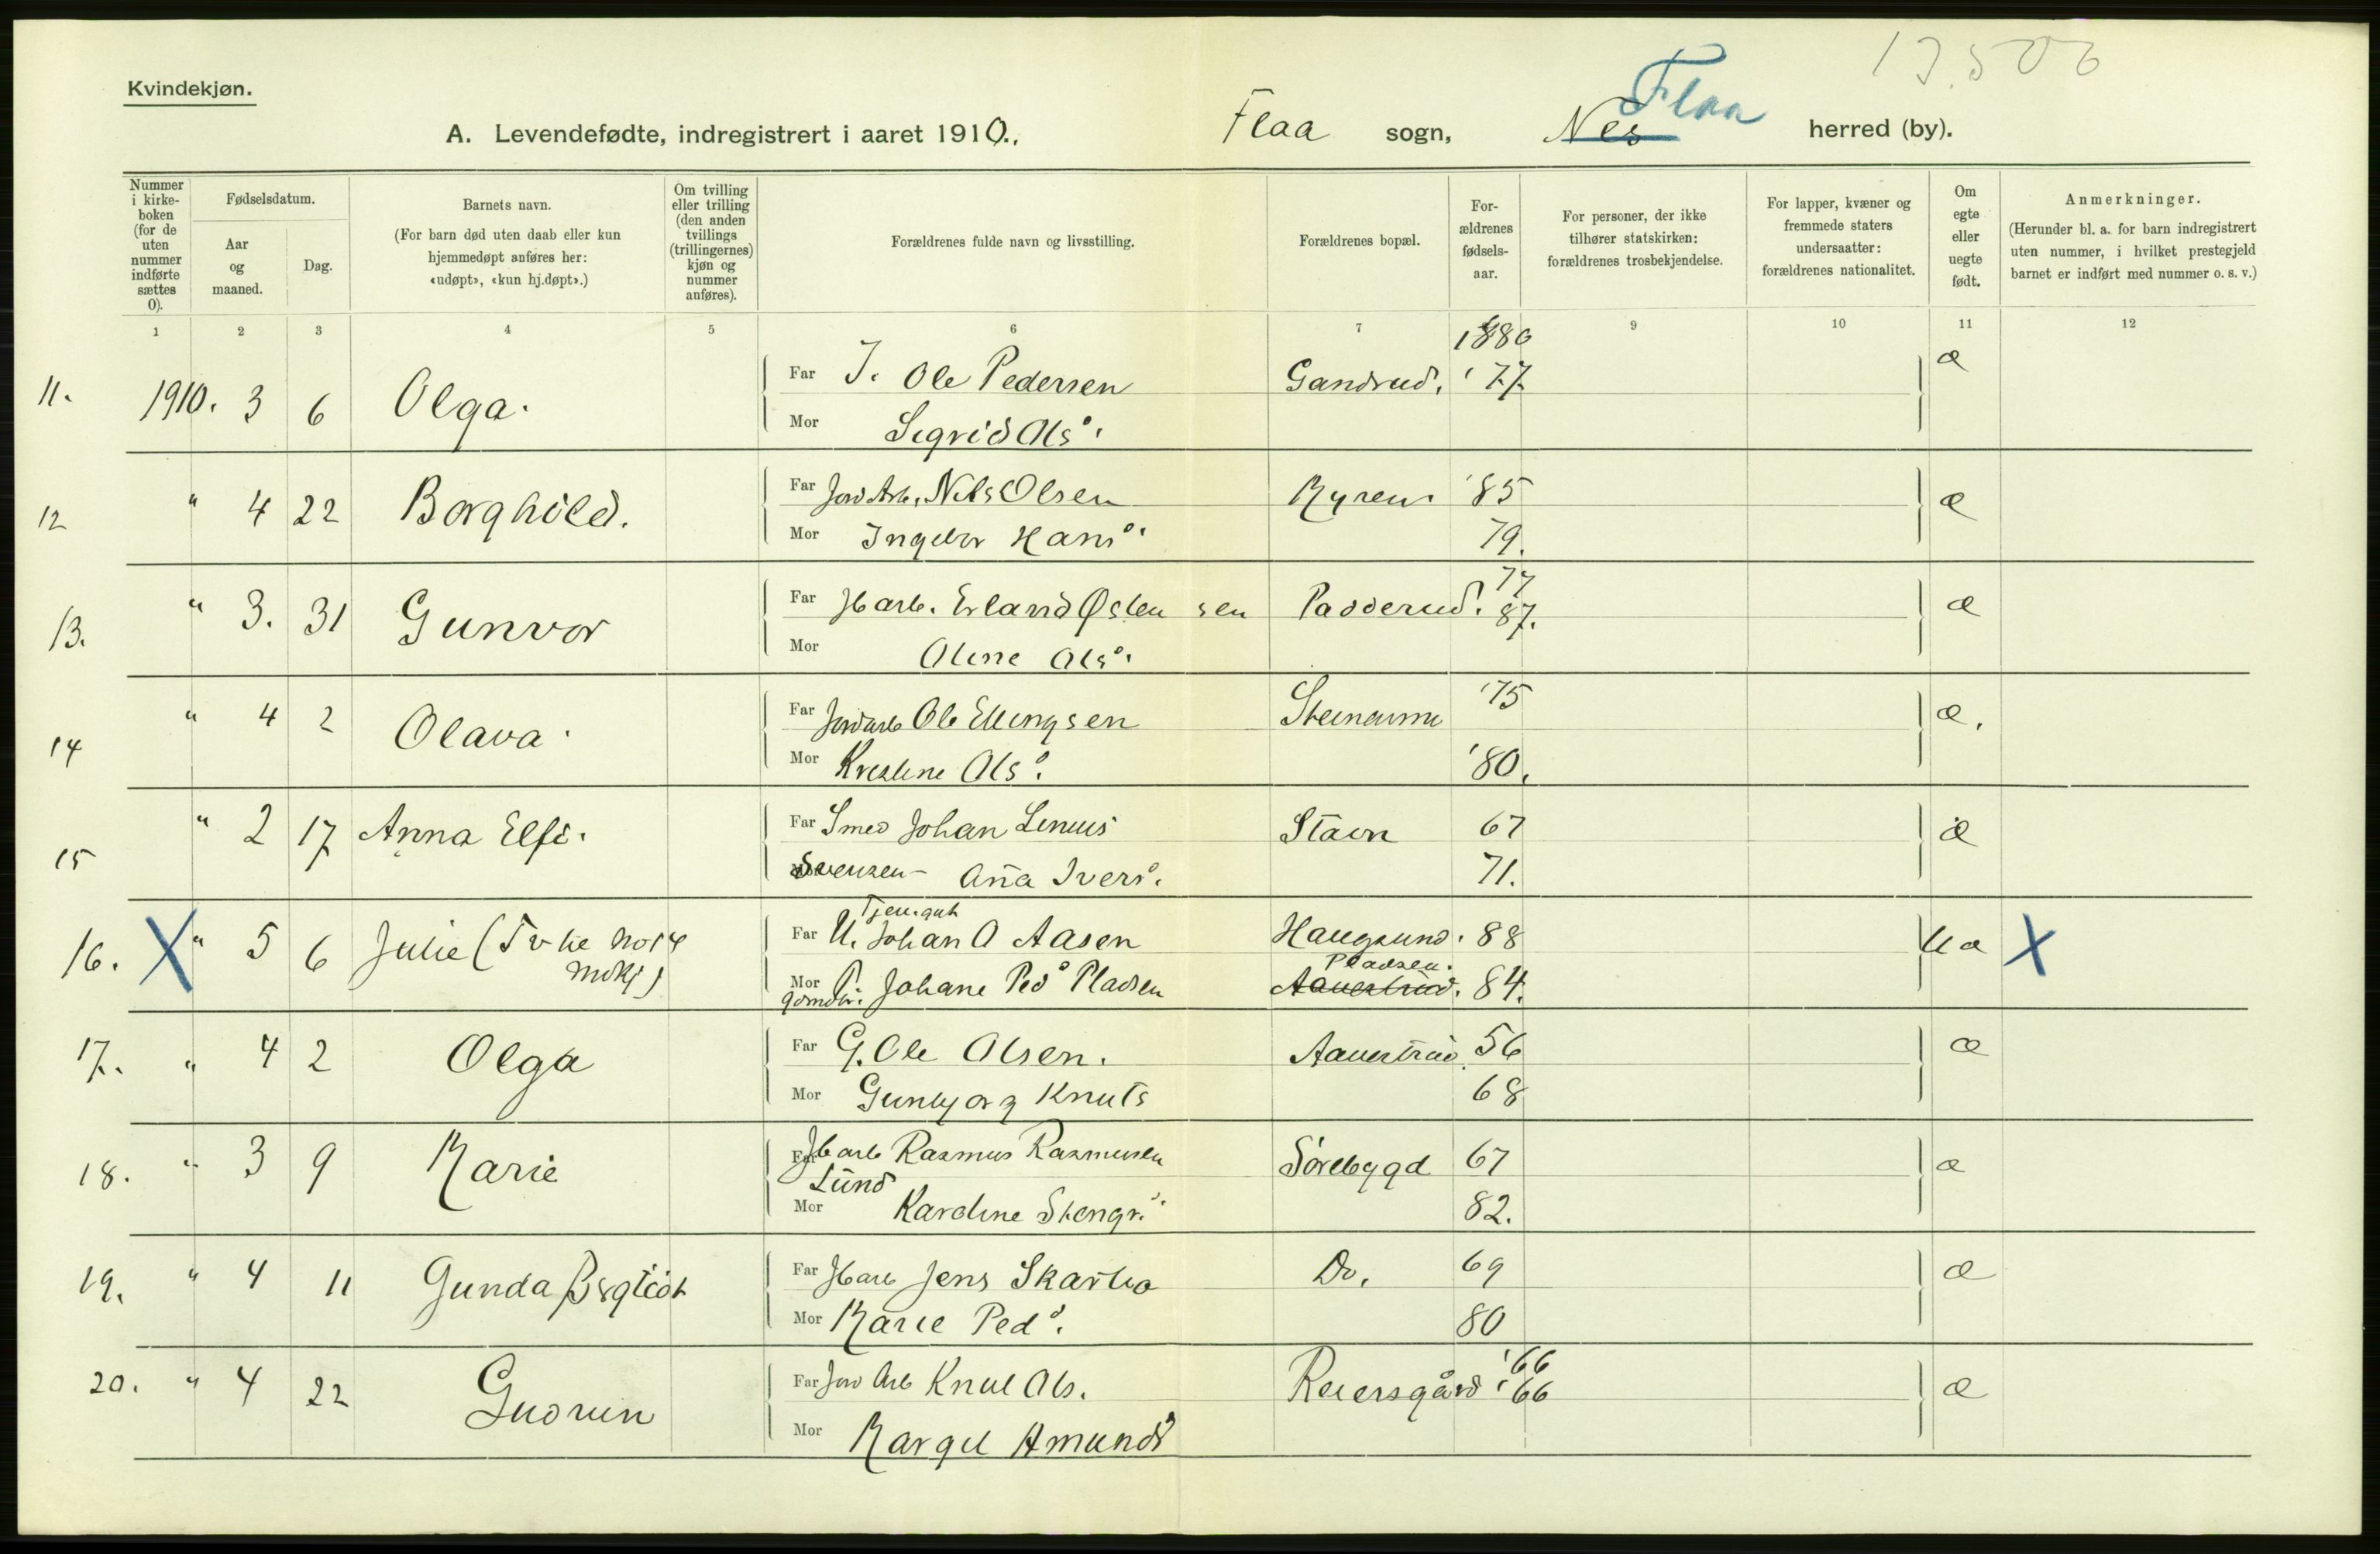 13506
Kvindekjøn.
Flaa
A. Levendefødte, indregistrert i aaret 1910., Flaa sogn, Nes herred (by).
Nummer i kirke-boken (for de uten nummer indførte sættes 0).
Fødselsdatum.
Aar og maaned.
Dag.
Barnets navn.
(For barn død uten daab eller kun hjemmedøpt anføres her: «udøpt», «kun hj.døpt».)
Om tvilling eller trilling (den anden tvillings (trillingernes) kjøn og nummer anføres).
Forældrenes fulde navn og livsstilling.
Forældrenes bopæl.
For-ældrenes fødsels-aar.
For personer, der ikke tilhører statskirken: forældrenes trosbekjendelse.
For lapper, kvæner og fremmede staters undersaatter: forældrenes nationalitet.
Om egte eller uegte født.
Anmerkninger.
(Herunder bl. a. for barn indregistrert uten nummer, i hvilket prestegjeld barnet er indført med nummer o. s. v.)
1 2 3 4 5 6 7 9 10 11 12
11. 1910. 3 6 Olga. Far J. Ole Pedersen Gandrud. 1880 æ
'77.
Mor Sigrid Ols.
12 " 4 22 Borghild. Far Jord Arb. Nils Olsen Myren. '85 æ
Mor Ingebor Hans. 79.
13. " 3. 31 Gunvor Far Jbarb. Erland Østensen Padderud. 77 æ
87.
Mor Oline Ols.
14 " 4 2 Olava. Far Jordarb Ole Ellingsen '75 æ.
Mor Kristine Ols. '80.
15 " 2 17 Anna Elfi. Far Smed Johan Linius Stavn 67 æ
Svensen - Mor Anna Ivers. 71.
Tjen.gut
16. X " 5 6 Julie Far U. Johan O Aasen Haugsund. 88 Uæ X
Mor P. Johane Ped Pladsen Pladsen. Aavestrud. 84.
gdmdtr.
17. " 4 2 Olga Far G. Ole Olsen. Aavestrud 56 æ
Mor Gunbjorg Knuts 68
18. " 3 9 Marie Far Jbarb Rasmus Rasmusen Sørebygd 67 æ
Lund
Mor Karoline Stengr. 82.
19. " 4 11 Gunda Bergliot Far Jbarb Jens Skartlia Do. 69 æ
Mor Marie Ped. 80
20. " 4 22 Gudrun Far Jord Arb Knut Ols. Reiersgård '66 æ
'66
Mor Margit Amunds